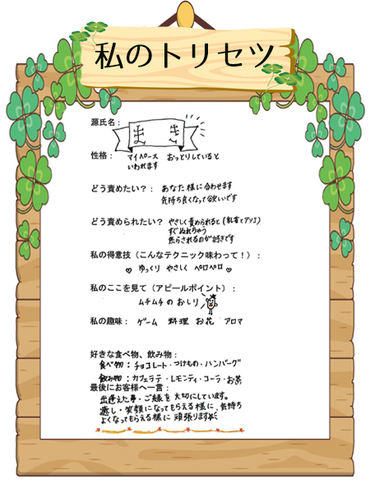 私のトリセツ
源氏名： まき
性格： マイペース おっとりしていると
いわれます
どう責めたい？： あなた様に合わせます
気持ち良くなって欲しいです
どう責められたい？ やさしく責められると(乳首とクリ)
すぐぬれちゃう
焦らされるのが好きです
私の得意技（こんなテクニック味わって！）：
ゆっくり やさしく ペロペロ
私のここを見て（アピールポイント）：
ムチムチ の おしり
私の趣味： ゲーム 料理 お花 アロマ
好きな食べ物、飲み物：
食べ物：チョコレート・つけもの・ハンバーグ
飲み物：カフェラテ・レモンティ・コーラ・お茶
最後にお客様へ一言：
出逢えた事・ご縁を大切にしています。
癒し・笑顔になってもらえる様に、気持ち
よくなってもらえる様に 頑張ります